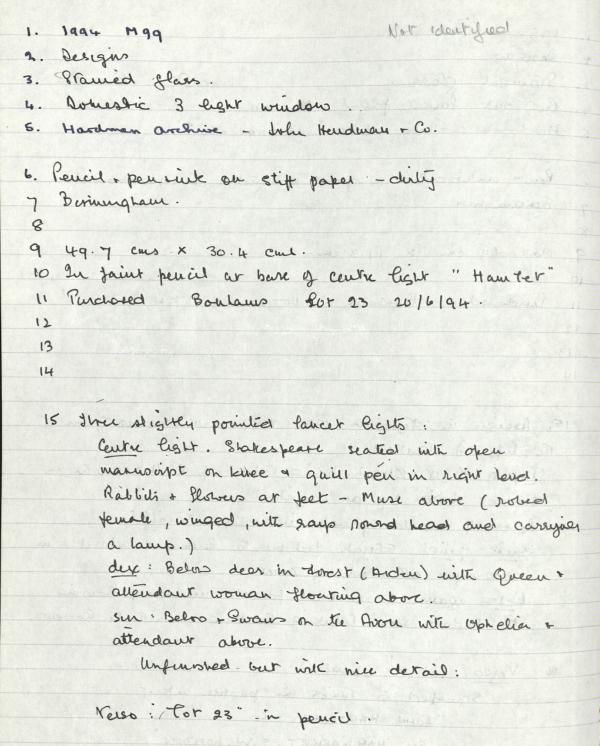 Not identified
1. 1994 M99
2. Designs
3. Stained glass.
4. Domestic 3 light window ..
5. Hardman archive - John Hardman + Co.
6. Pencil + pen & ink on stiff paper - dirty
7 Birmingham.
8
9 49.7 cms x 30.4 cms.
10 In faint pencil at base of centre light " Hamlet"
11 Purchased Bonhams Lot 23 20/6/94.
12
13
14
15 Three slightly pointed lancet lights :
Centre light. Shakespeare seated with open
manuscript on knee + quill pen in right hand.
Rabbits + flowers at feet - Muse above ( robed
female, winged, with rays round head and carrying
a lamp.)
dex : Below deer in forest (Arden) with Queen +
attendant woman floating above.
sin : Below + Swans on the Avon with Ophelia +
attendant above.
Unfinished but with nice detail :
Verso : "Lot 23" in pencil .